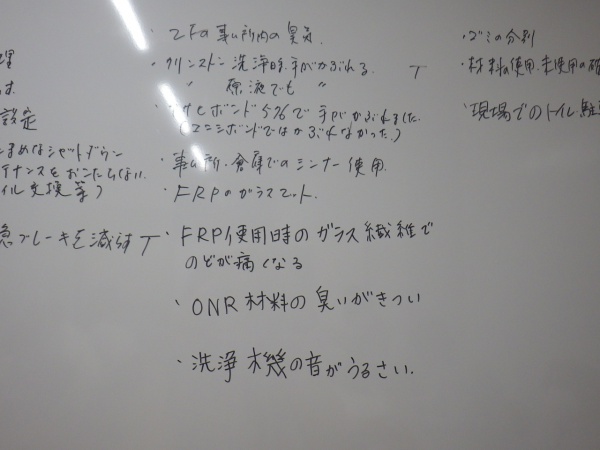 理
設定
こまめなシャットダウン
テナンスをおこたらない
イル交換等)
急ブレーキを減らす T
・2Fの事ム所内の臭気.
・クリンストン洗浄時手がかぶれる. T
〃 原液でも 〃
ボンド5%で手がかぶれました.
(ユニシボンドではかぶれなかった.)
・事ム所・倉庫でのシンナー使用.
・FRPのガラスマット.
・FRP使用時のガラス繊維で
のどが痛くなる
・ONR材料の臭いがきつい
・洗浄機の音がうるさい.
・ゴミの分別
・材料の使用.未使用の確
・現場でのトイレ.駐